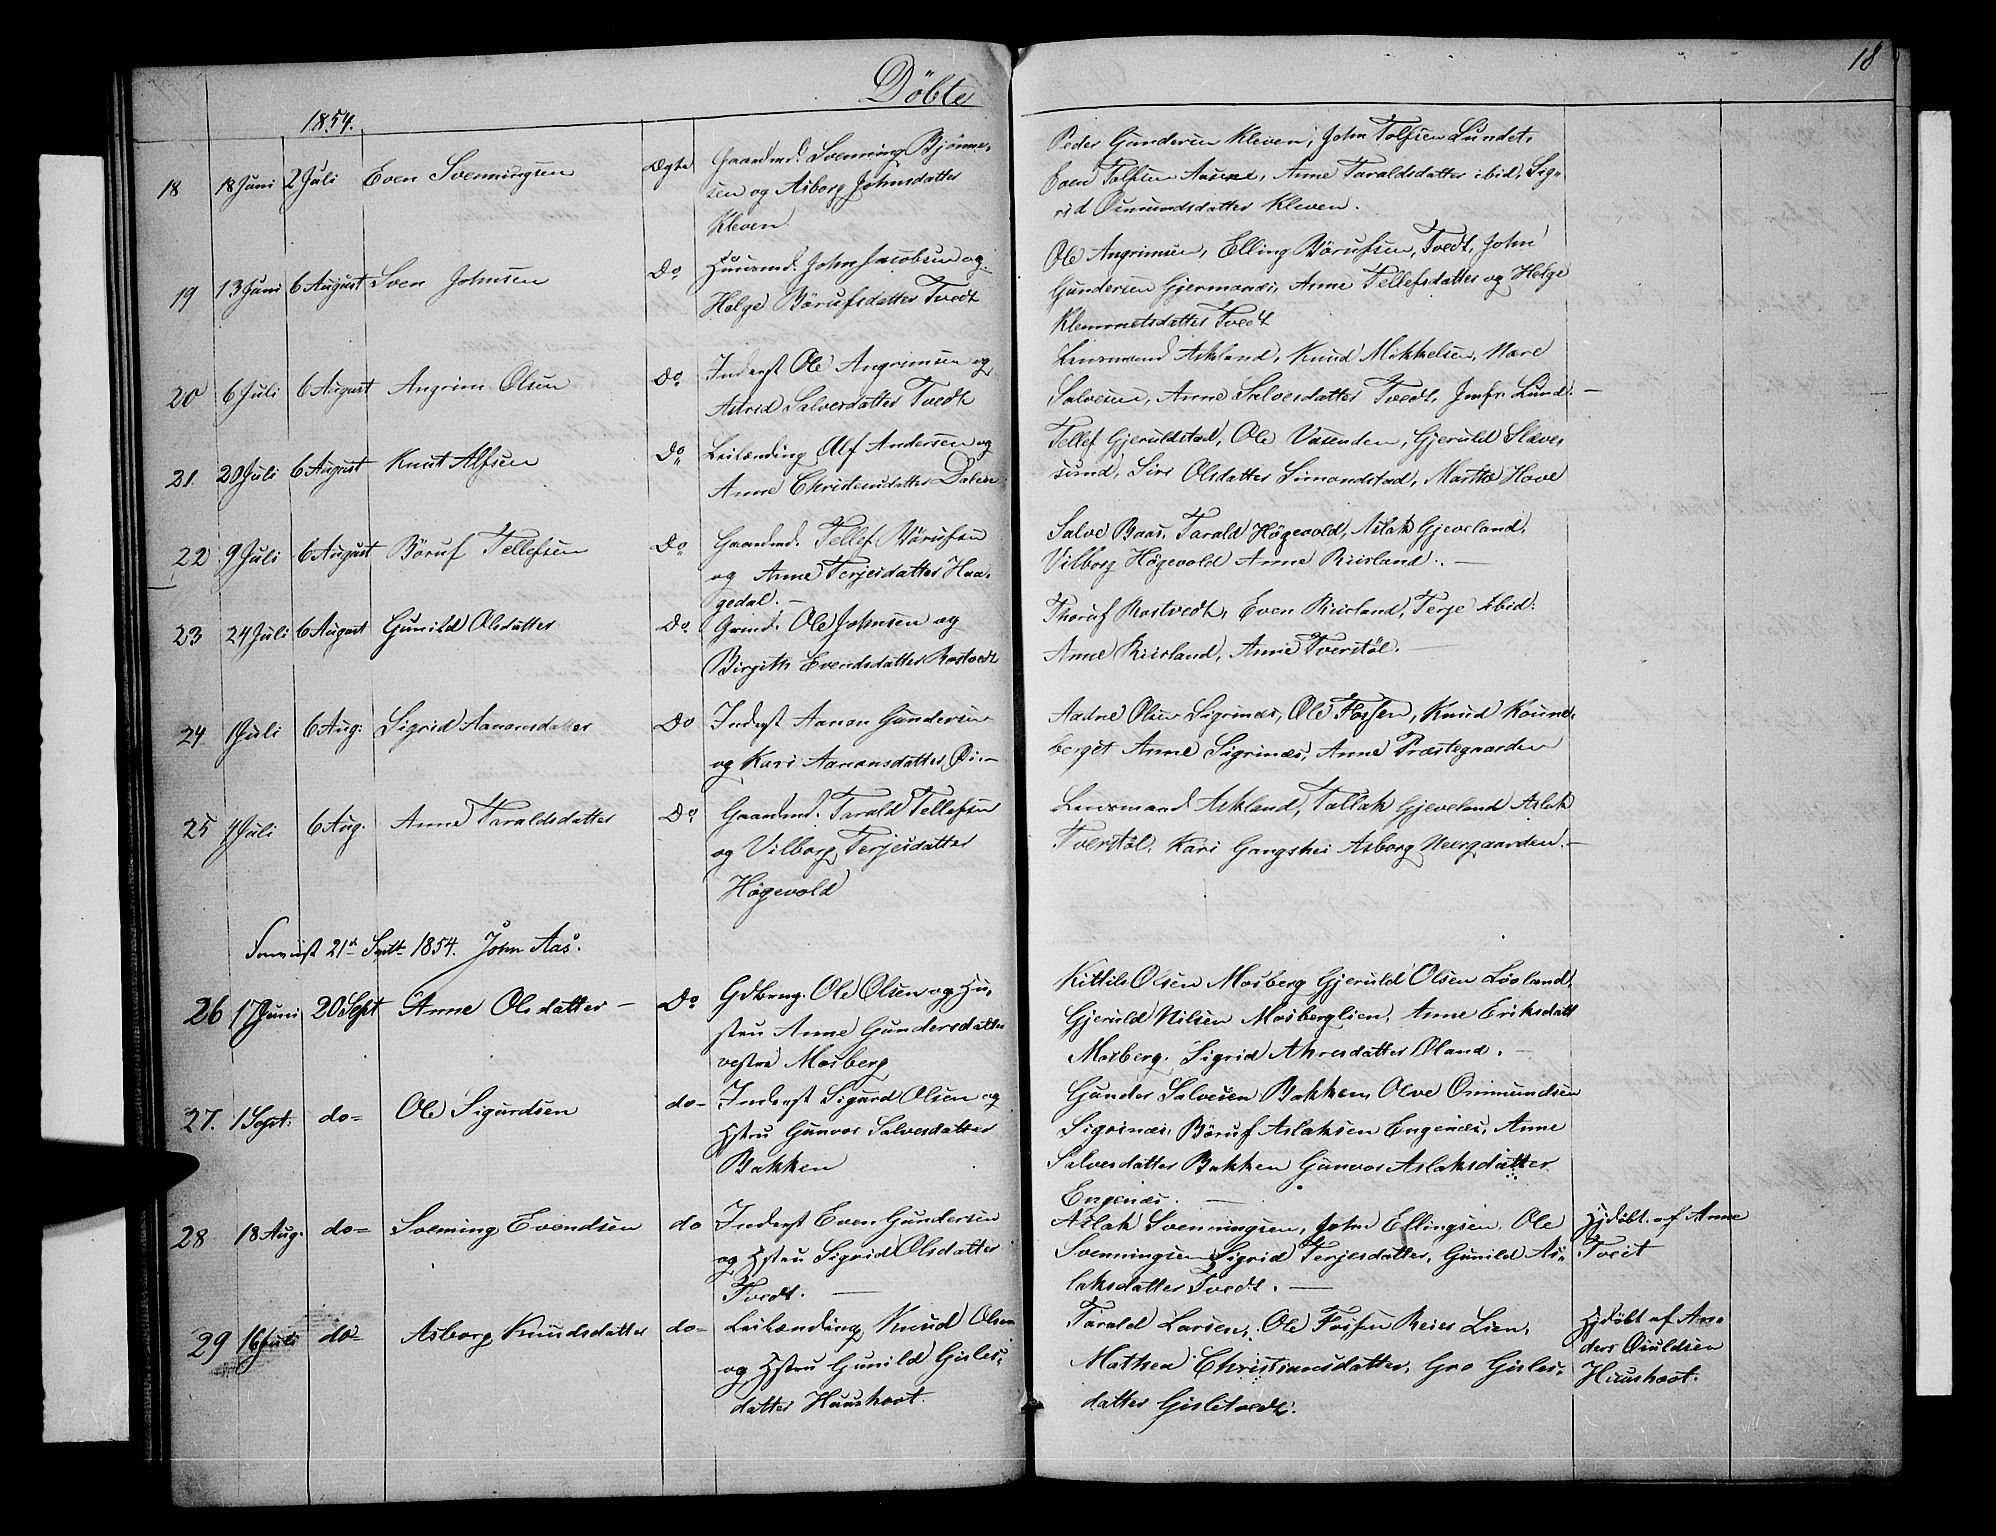 Döbte
18
1854.
18 18 Juni 2 Juli Even Svenningsen Ægte Gaardmd. Svenning Bjönne-
sen og Asborg Johnsdatter
Kleven
Peder Gundersen Kleven, John Tolfsen Lundet,
Even Tolfsen Aasne, Anne Taraldsdatter ibid, Sig-
rid Osmundsdatter Kleven.
19 13 Juni 6 August Sven Johnsen Do Huusmd. John Jacobsen og
Helge Börufsdatter Tvedt
Ole Angrimsen, Elling Börufsen, Tvedt, John
Gundersen Gjermonæs, Anne Tellefsdatter og Helge
Klemmetsdatter Tvedt
20 6 Juli 6 August Angrim Olsen Do Inderst Ole Angrimsen og
Astrid Salvesdatter Tvedt
Lensmand Askland, Knud Mikkelsen, Nare
Salvesen, Anne Salvesdatter Tvedt, Jmfr. Lund. —
21. 20 Juli 6 August Knut Alfsen Do Leilænding Alf Andersen og
Anne Christensdatter Dalene
Tellef Gjeruldstad, Ole Vasenden, Gjeruld Slæve-
sund, Siri Olsdatter Simonstad, Marthe Hove
22 9 Juli 6 August Böruf Tellefsen Do Gaardmd. Tellef Börufsen
og Anne Terjesdatter Haa-
gedal. —
Salve Baas, Tarald Högevold, Aslak Gjeveland,
Vilborg Högevold Anne Riisland. —
23 24 Juli 6 August Gunild Olsdatter Do. Grmd. Ole Johnsen og
Birgith Evendsdatter Rostvedt
Thoruf Rostvedt, Even Riisland, Terje ibid:
Anne Riisland, Anne Tverstöl. —
24 1 Juli 6 Aug: Sigrid Aanonsdatter Do Inderst Aanon Gundersen
og Kari Aanonsdatter Öi —
Aadne Olsen Sigrinæs, Ole Fossen, Knud Koune-
berget Anne Sigrinæs, Anne Præstegaarden
25 4 Juli 6 Aug. Anne Taraldsdatter Do Gaardmd. Tarald Tellefsen
og Vilborg Terjesdatter
Högevold
Lensmand Askland, Tallak Gjeveland Aslak
Tverstöl. Kari Gangshei Asborg Neergaarden. —
21de Septbr 1854. John Aas.
26 17 Juni 20 Sept Anne Olsdatter — Do Gdbrug. Ole Olsen og Hu-
stru Anne Gundersdatter
vestre Mosberg
Kittil Olsen Mosberg Gjeruld Olsen Lösland,
Gjeruld Nilsen Mosberglien, Anne Eriksdatt
Mosberg. Sigrid Ahresdatter Öland. —
27. 1 Sept: do— Ole Sigurdsen do— Inderst Sigurd Olsen og
Hstru Gunvor Salvesdatter
Bakken
Gunder Salvesen Bakken, Olve Ommundsen
Sigrinæs, Böruf Aslaksen Engenæs, Anne
Salvesdatter Bakken Gunvor Aslaksdatter
Engenæs. —
28 18 Aug. do— Svening Evendsen do Inderst Even Gundersen
og Hstru Sigrid Olsdatter
Tvedt. —
Aslak Svenningsen, John Ellingsen, Ole
Svenningsen Sigrid Terjesdatter, Gunild As-
laksdatter Tvedt. —
Hjdöbt. af Anne
Tveit
29 16 Juli do— Asborg Knudsdatter do— Leilænding Knud Olsen
og Hstru Gunild Gisles-
datter Huushovt.
Tarald Larsen, Ole Fossen Reier Lien,
Mathea Christiansdatter, Gro Gisles-
datter Gisletvedt.
Hjdöbt af An-
ders Osuldsen
Huushovt.